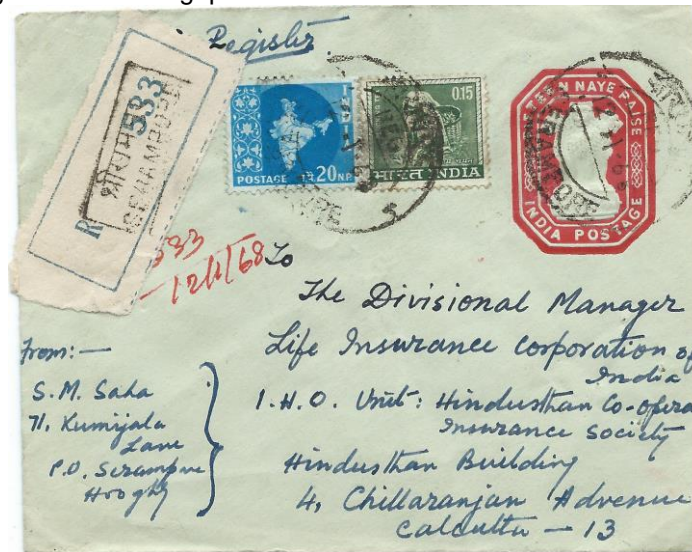 Register
R
533
श्रीराम
SERAMPORE
POSTAGE 20 NP
0.15
भारत INDIA
TEEN NAYE PAISE
INDIA POSTAGE
SERAMPORE
533
12/11/68
To
The Divisional Manager
Life Insurance Corporation of
India
I.H.O. Unit: Hindusthan Co-opera
Insurance Society
Hindusthan Building
4, Chillaranjan Advenue
Calcutta - 13
From:-
S.M. Saha
71, Kumijala
Lane
P.O. Serampore
Hooghly